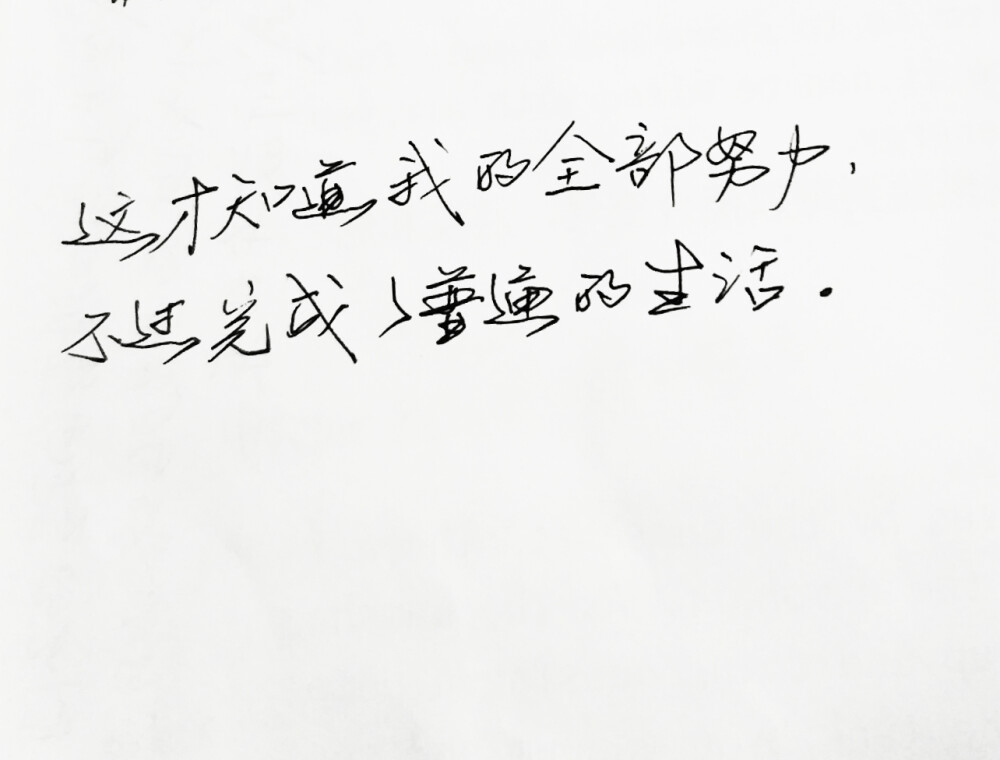 这才知道我的全部努力，
不过完成了普通的生活.